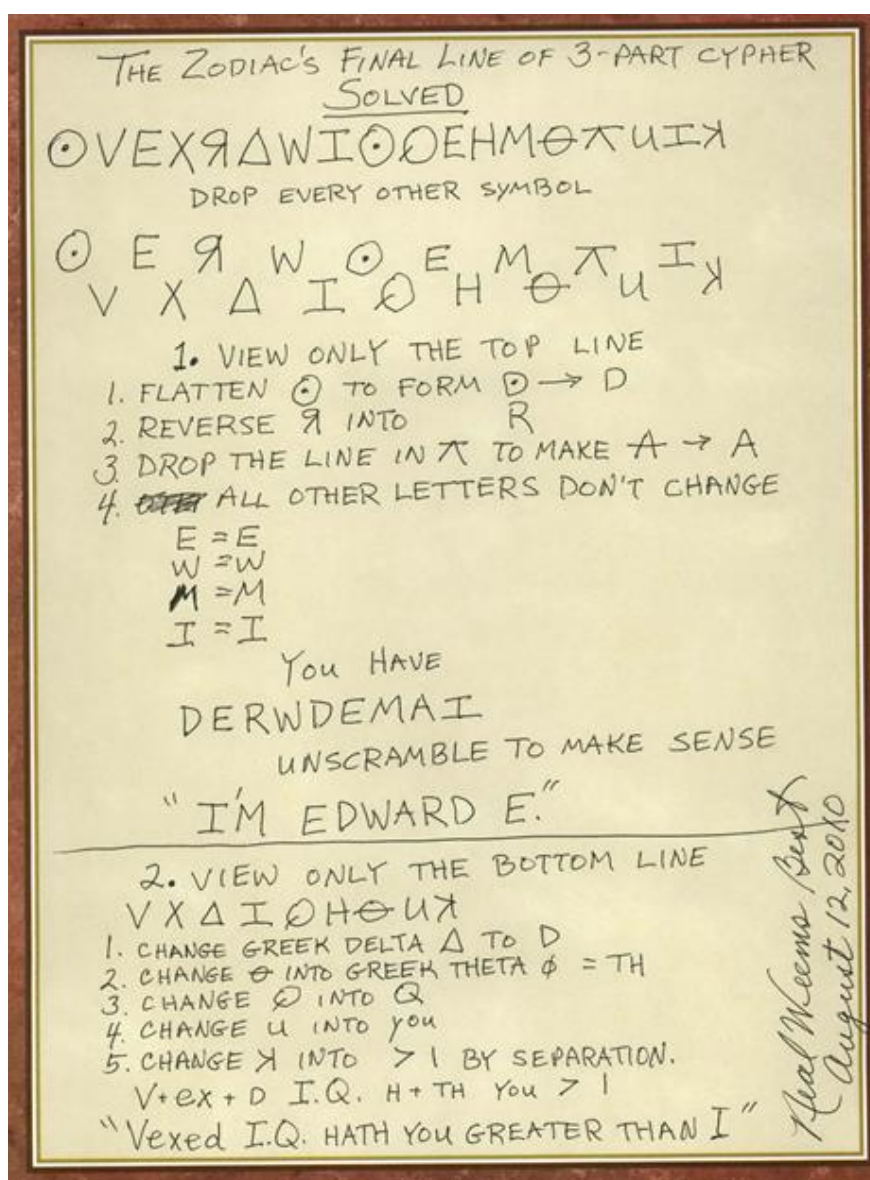 THE ZODIAC'S FINAL LINE OF 3-PART CYPHER
SOLVED
⊙VEXЯΔWI⊙∅EHMꝊꞱUIʞ
DROP EVERY OTHER SYMBOL
⊙ E Я W ⊙ E M ⊼ I
V X Δ I ∅ H ɵ U ʞ
1. VIEW ONLY THE TOP LINE
1. FLATTEN ⊙ TO FORM D → D
2. REVERSE Я INTO R
3. DROP THE LINE IN ⊼ TO MAKE A → A
4. ALL OTHER LETTERS DON'T CHANGE
E = E
W = W
M = M
I = I
YOU HAVE
DERWDEMAI
UNSCRAMBLE TO MAKE SENSE
"I'M EDWARD E."
2. VIEW ONLY THE BOTTOM LINE
V X Δ I ∅ H ɵ U ʞ
1. CHANGE GREEK DELTA Δ TO D
2. CHANGE ɵ INTO GREEK THETA ϕ = TH
3. CHANGE ∅ INTO Q
4. CHANGE U INTO YOU
5. CHANGE ʞ INTO > I BY SEPARATION.
V + ex + D I.Q. H + TH YOU > I
"Vexed I.Q. HATH YOU GREATER THAN I"
Neal Weems Best
August 12, 2010